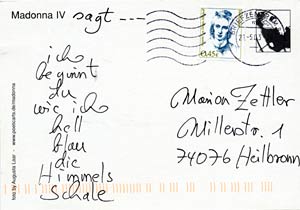 Madonna IV sagt ---
ich
beginnt
du
wie ich
hell
blau
die
Himmels
schale
0,45€
21-5.03
Marion Zettler
Millerstr. 1
74076 Heilbronn
www.postcarts.de/madonna